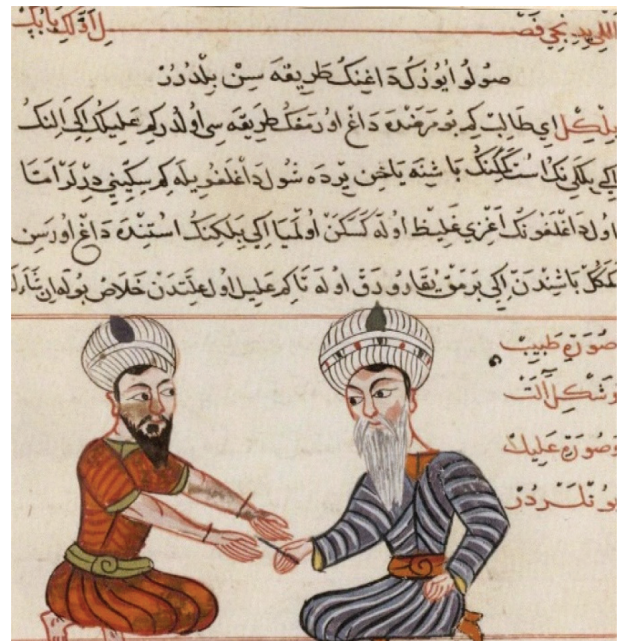 اللي يدنجي فصل
صولو ايوزك داغينك طريقه سن بلدرر
بلكل اي طالب كم بو مرضده داغ اورمغك طريقه سي اولدركم عليلك اكي النك
اكي بلكي نك باشنه ياخن يرده شول داغلغويله كم سكيني درلر اما
اول داغلغونك اغزي غليظ اوله كسكن اولميا اكي بلكنك استنده داغ اورسن
باشندن اكي برمق يقارورق اوله تا كم عليل اول علتدن خلاص بوله ان شاء
صورة طبيب
وشكل آلت
وصورة عليك
بو نلردر